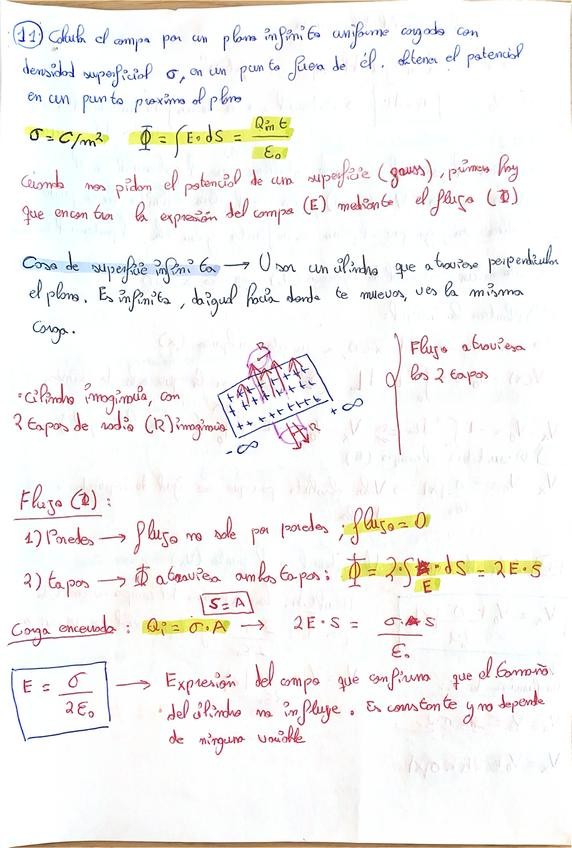 11) Calcula el campo por un plano infinito uniforme cargado con
densidad superficial σ, en un punto fuera de él. Obtener el potencial
en un punto proximo al plano
σ = C/m² Φ = ∫E·dS = Qint / ε₀
Cuando nos pidan el potencial de una superficie (gauss), primero hay
que encontrar la expresión del campo (E) mediante el flujo (Φ)
Caso de superficie infinita → Usar un cilindro que atraviese perpendicular
el plano. Es infinito, da igual hacia donde te muevas, ves la misma
carga.
Flujo atraviesa
los 2 tapas
R
• Cilindro imaginario, con
2 tapas de radio (R) imaginario
+∞
R
-∞
Flujo (Φ):
1) Paredes → flujo no sale por paredes, flujo = 0
2) tapas → Φ atraviesa ambas tapas: Φ = 2·∫E·dS = 2E·S
S = A
Carga encerrada: Qi = σ·A → 2E·S = σ·S / ε₀
E = σ / 2ε₀ → Expresión del campo que confirma que el tamaño
del cilindro no influye. Es constante y no depende
de ninguna variable